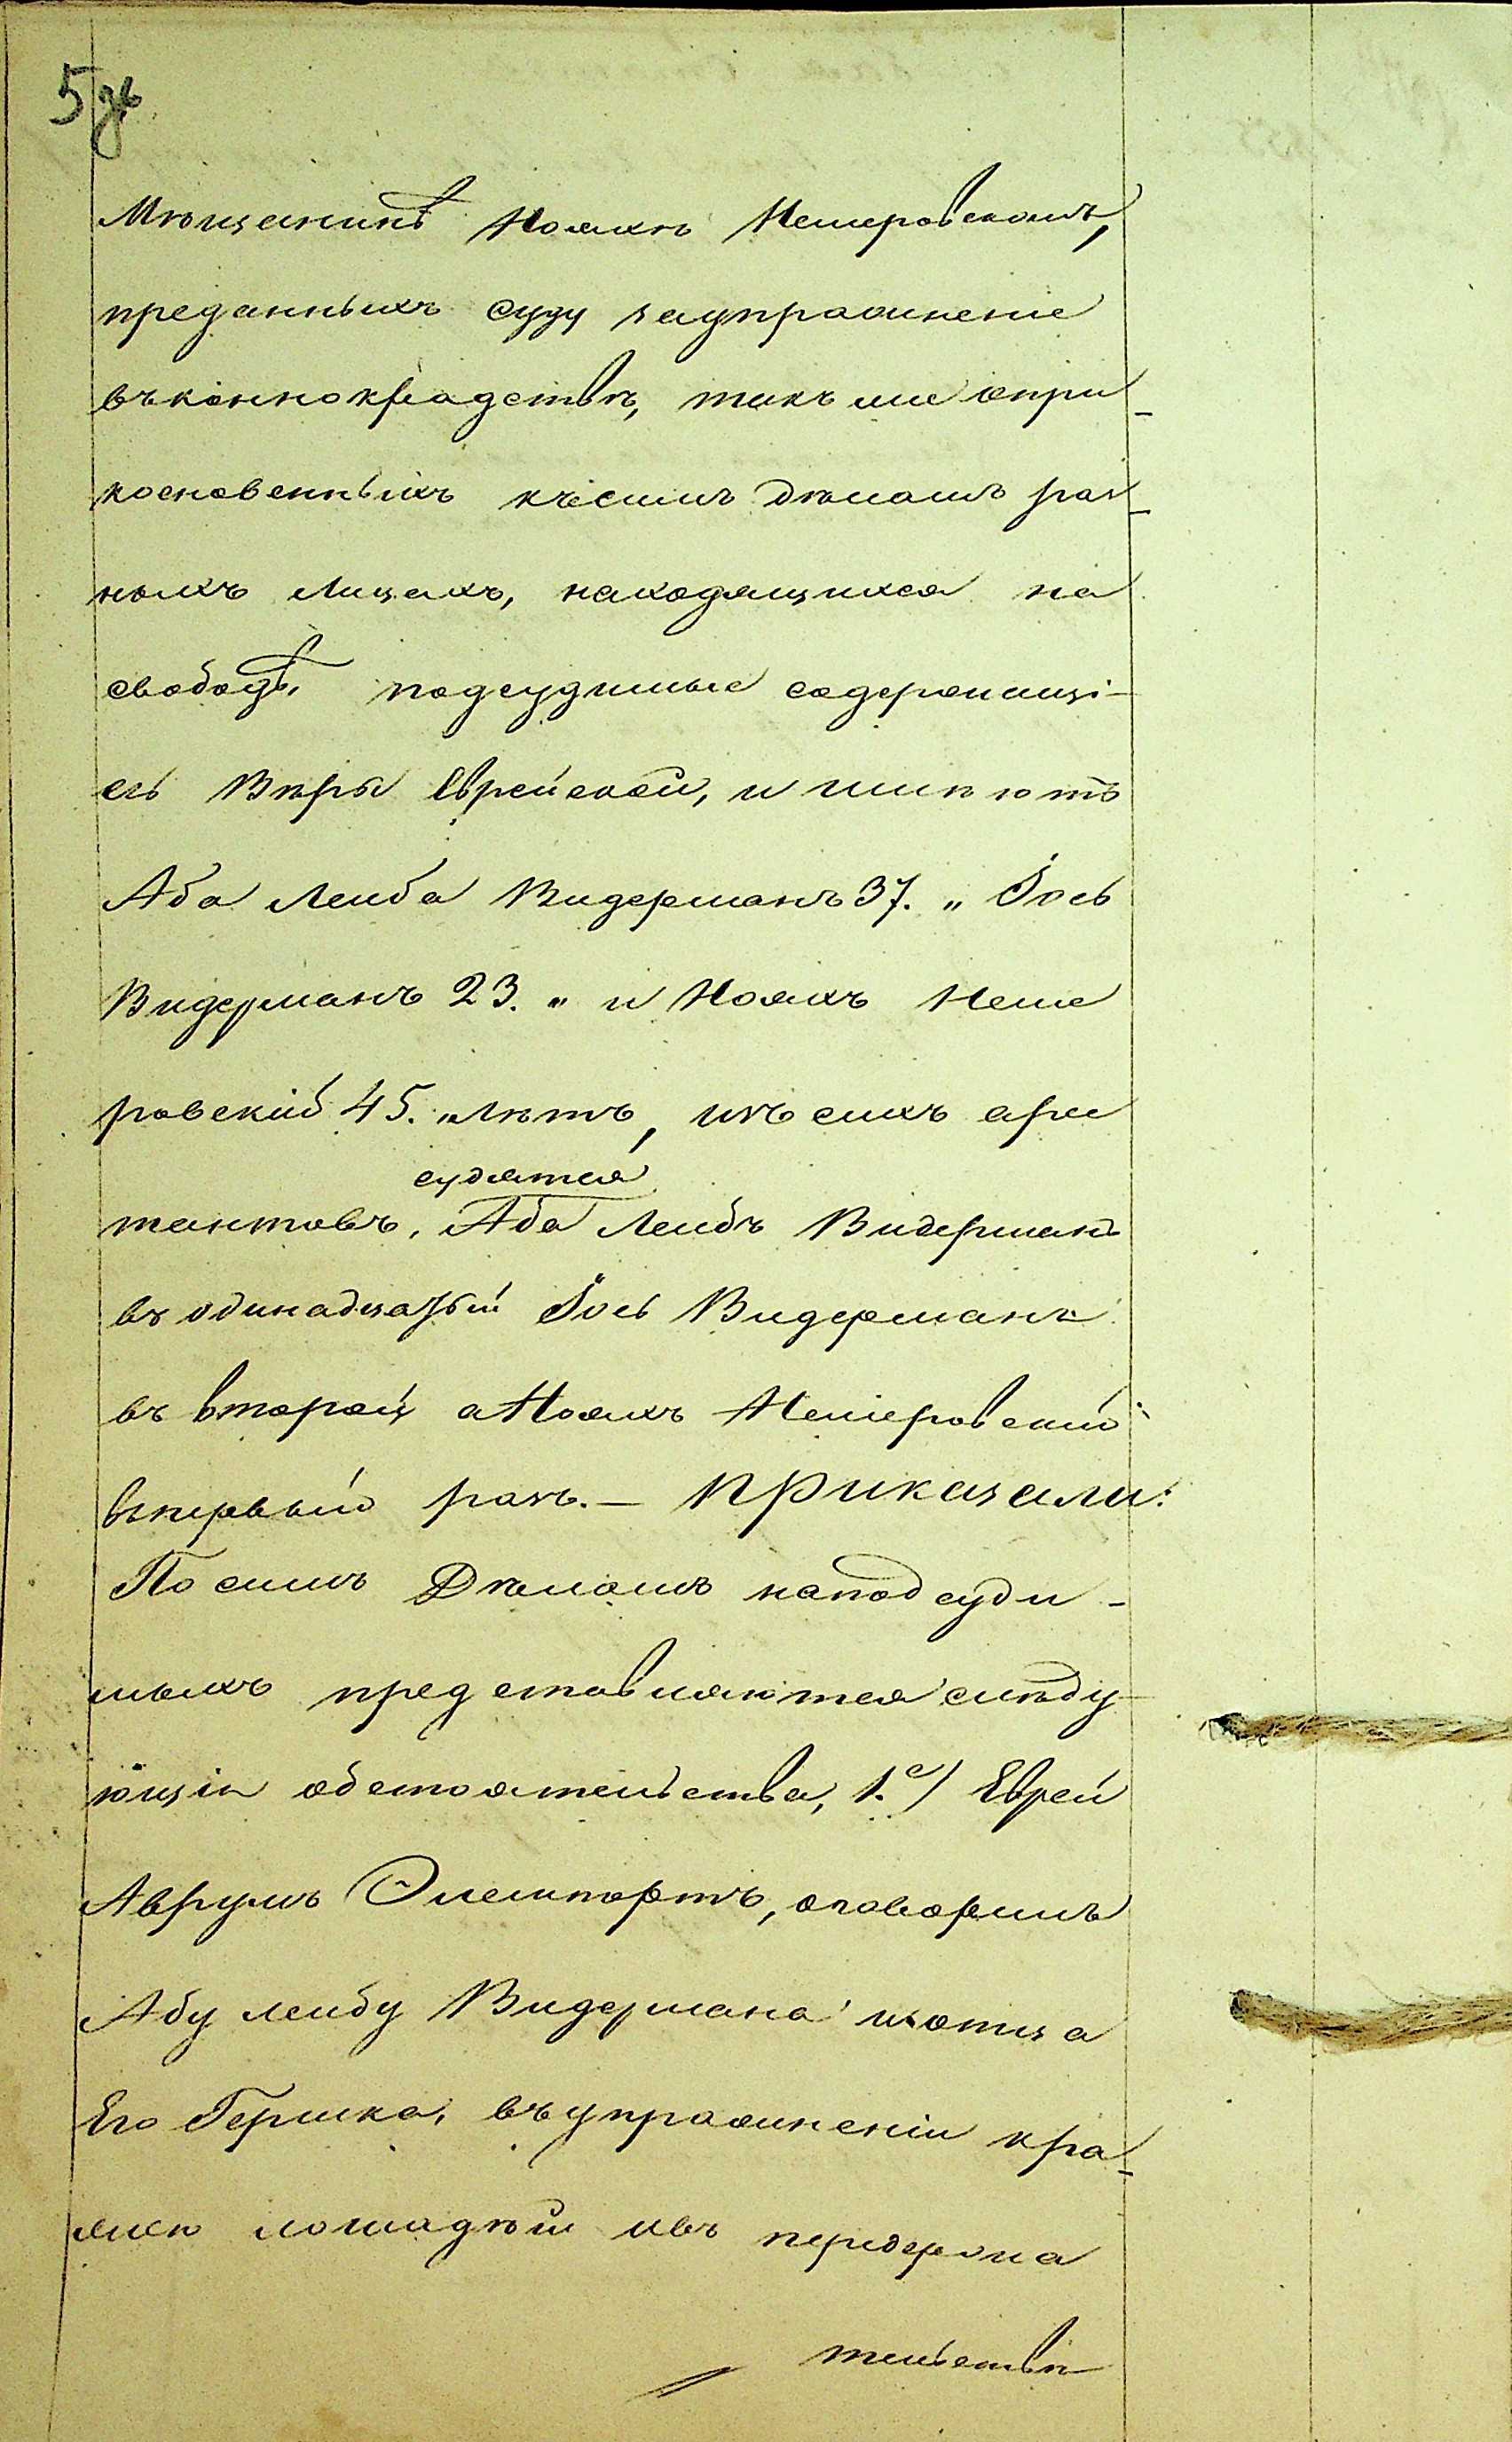 Мѣщанинѣ Ноахѣ Немеровскомъ,
преданныхъ суду заупражненіе
въконнокрадствѣ, такъ же опри-
косновенныхъ къ симъ дѣламъ раз-
ныхъ лицахъ, находящихся на
свободѣ, подсудимые содержащі-
есь Вѣры Еврейской, и имѣютъ
Аба Лейба Видерманъ 37. „ Іось
Видерманъ 23. „ и Ноахъ Неме
ровскій 45. „ лѣтъ, изъ сихъ аре
судятся
тантовъ, Аба Лейбъ Видерманъ
въ одинадцатый Іось Видерманъ
въ второй а Ноахъ Немеровскій
впервый разъ. — Приказали:
По симъ Дѣламъ на подсуди-
мыхъ представляются слѣду-
ющіи обстоятельства, 1.е) Еврей
Аврумъ Элемпортъ, оговорилъ
Абу лейбу Видермана и отца
Его Гершка, въ упражненіи кра-
жею лошадѣй и въ передержа
тельствѣ